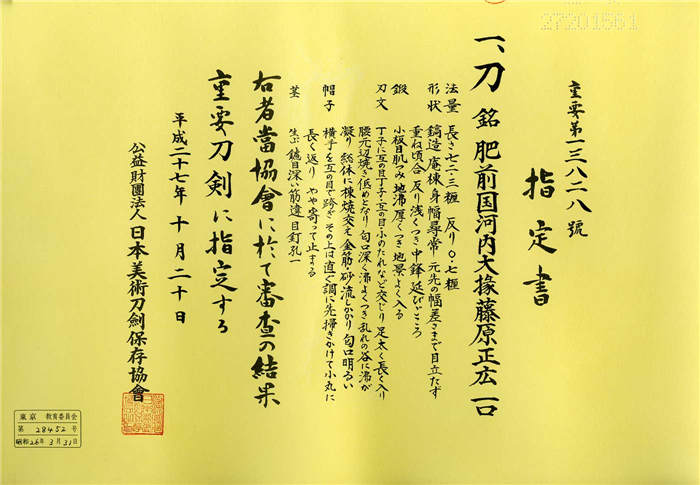 重要第一三八二八號
指定書
一、刀 銘 肥前国河内大掾藤原正広 一口
法量 長さ七二・三糎 反り〇・七糎
形状 鎬造 庵棟 身幅尋常 元先の幅差さまで目立たず
重ね頃合 反り浅くつき 中鋒延びごころ
鍛 小板目肌つみ 地沸厚くつき 地景よく入る
刃文 丁子に互の目丁子・互の目・小のたれなど交じり 足太く長く入り
腰元辺焼き低めとなり 匂口深く 沸よくつき 乱れの谷に沸が
凝り 総体に棟焼交え 金筋・砂流しかかり 匂口明るい
帽子 横手を互の目で跨ぎ その上は直ぐ調に先掃きかけて小丸に
長く返り やや寄って止まる
茎 生ぶ 鑢目深い筋違 目釘孔一
右者當協會に於て審査の結果
重要刀剣に指定する
平成二十七年 十月二十日
公益財團法人 日本美術刀劍保存協會
東京 教育委員会
第 28452 号
昭和26年3月31日
27201561